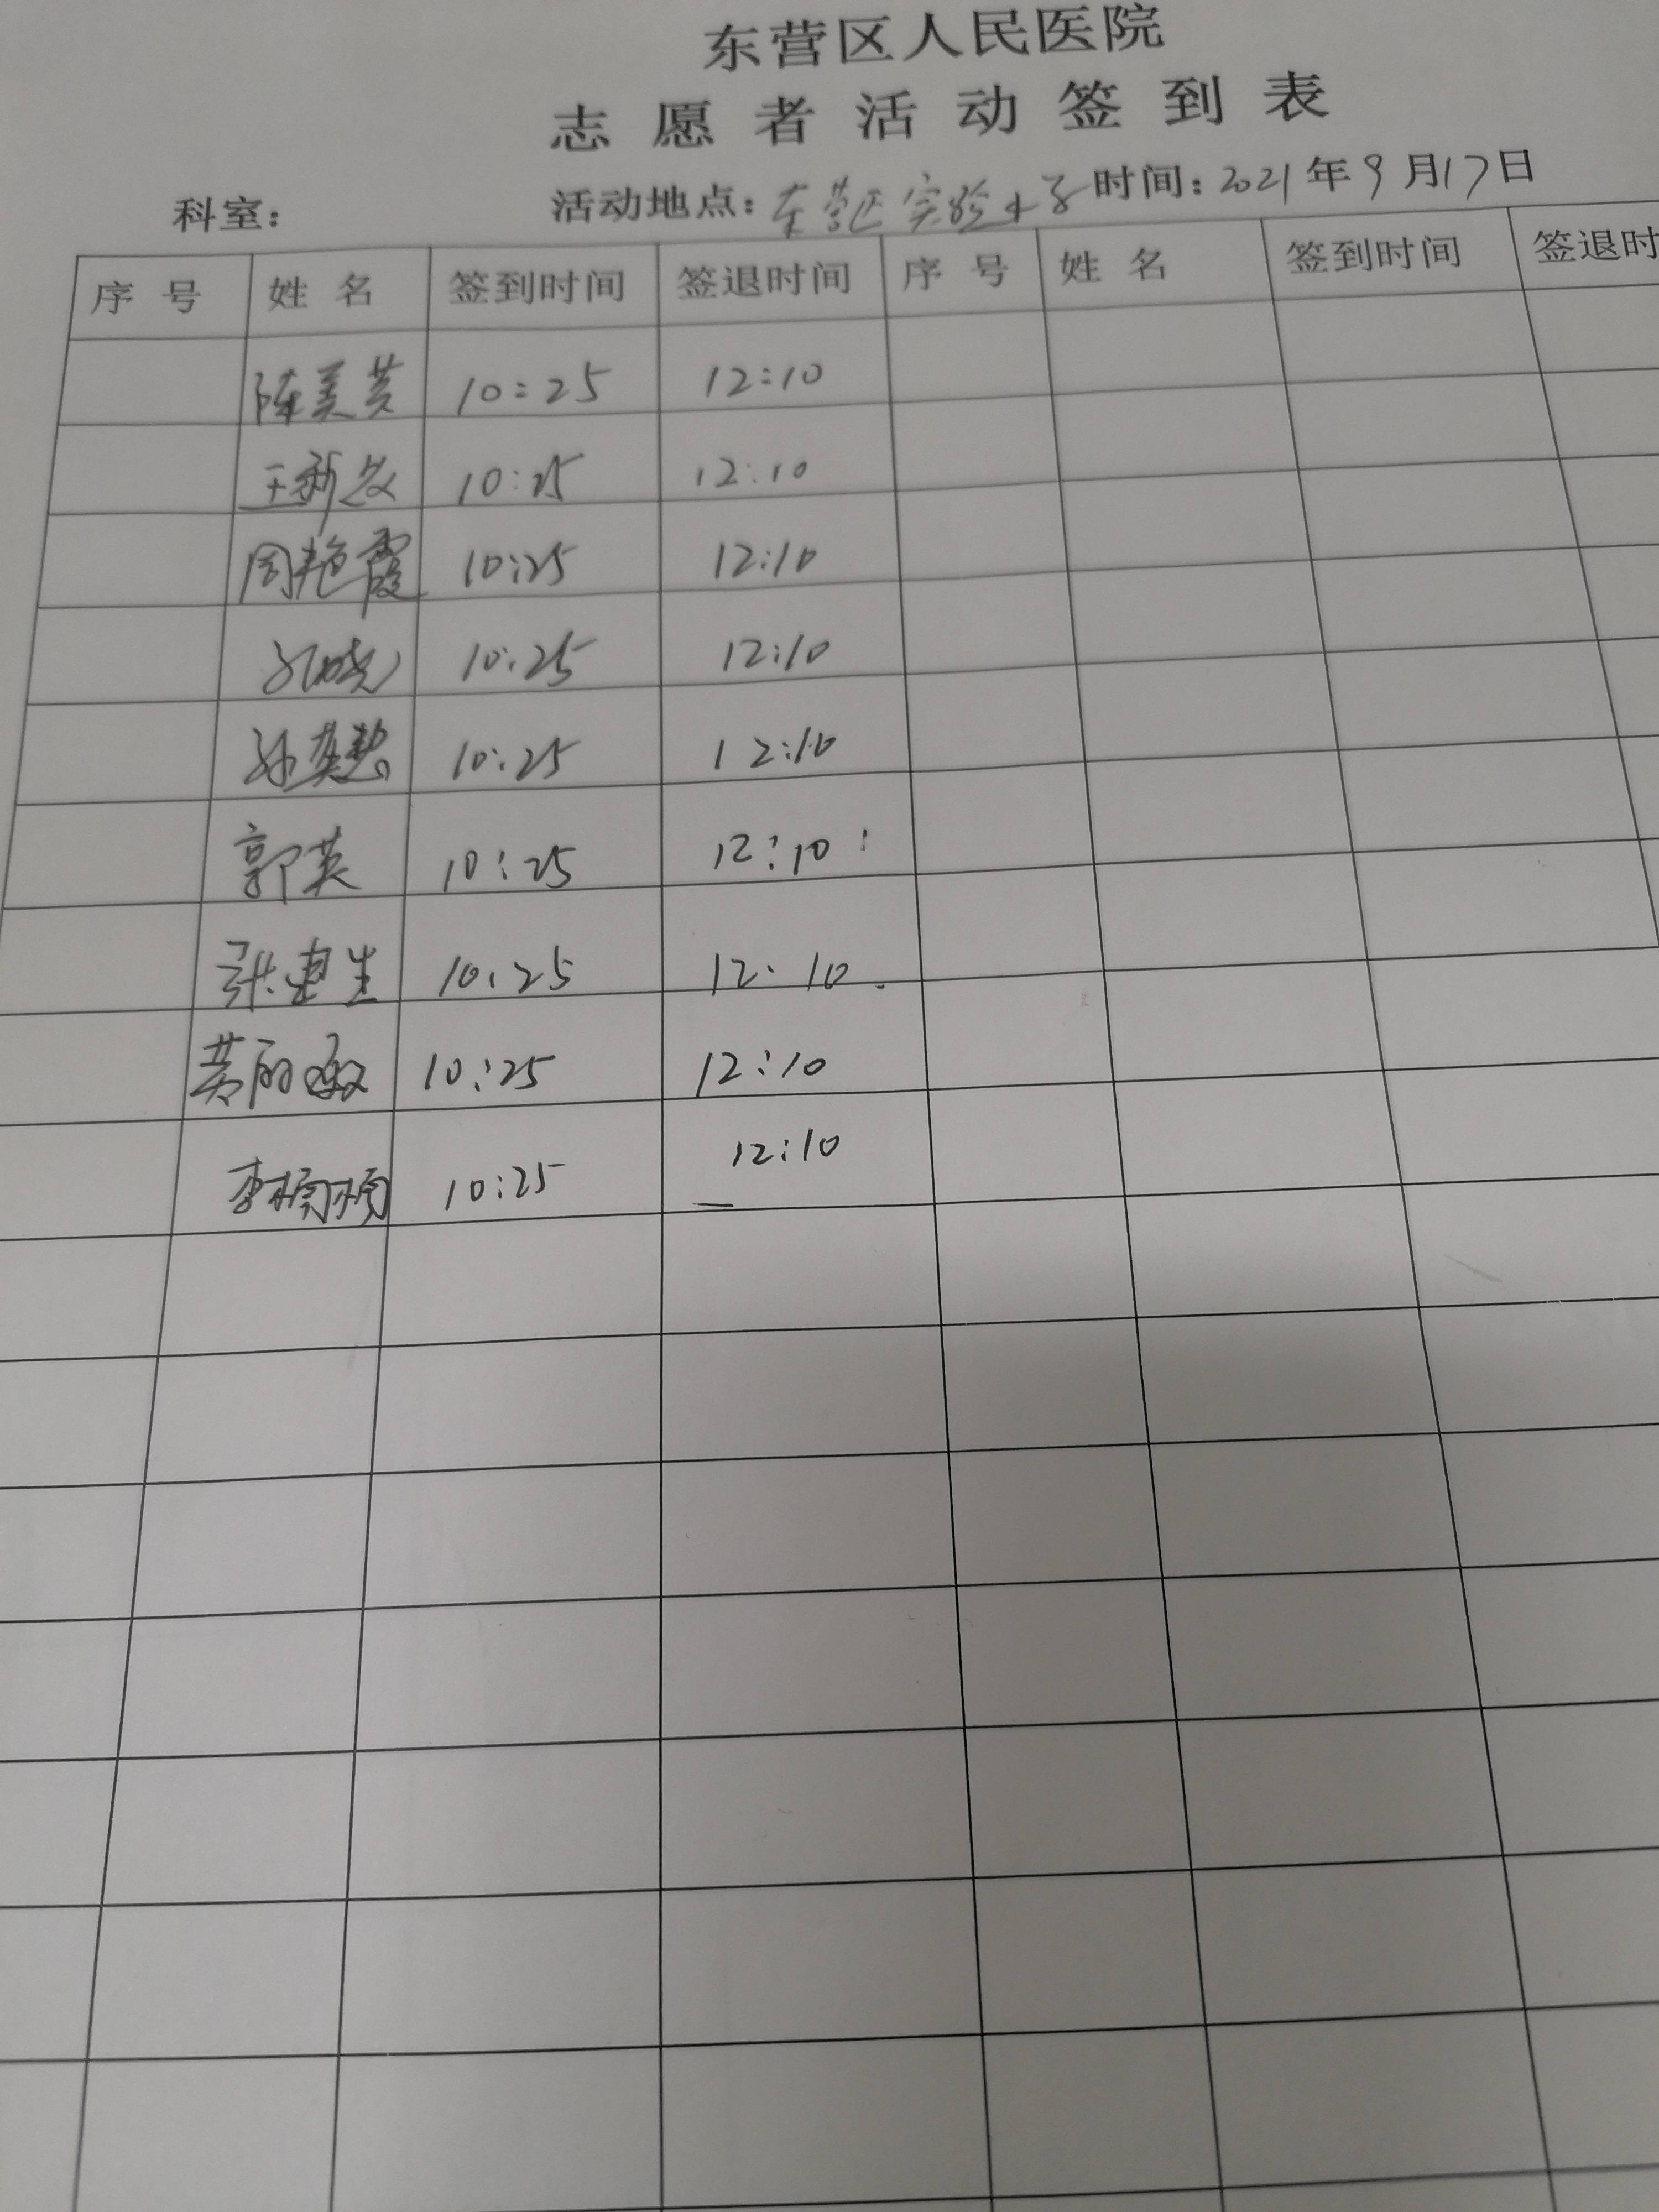 东营区人民医院
志愿者活动签到表
科室： 活动地点：东营区实验小学 时间：2021年9月17日
序号 姓名 签到时间 签退时间 序号 姓名 签到时间 签退时
陈美芸 10:25 12:10
10:25 12:10
周艳霞 10:25 12:10
孔晓 10:25 12:10
孙英慧 10:25 12:10
郭英 10:25 12:10
张建生 10:25 12:10
黄丽敏 10:25 12:10
李楠楠 10:25 12:10